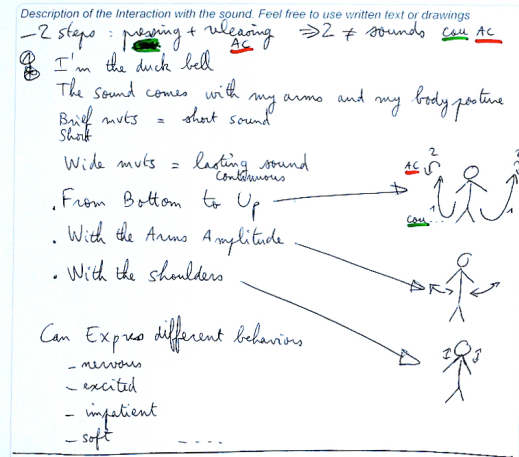 Description of the Interaction with the sound. Feel free to use written text or drawings
- 2 steps : pressing + releasing => 2 ≠ sounds cou AC
AC
I'm the duck bell
The sound comes with my arms and my body posture
Brief mvts = short sound
Short
Wide mvts = lasting sound
continuous
. From Bottom to Up
. With the Arms Amplitude
. With the shoulders
AC 2 2
1 1
cou...
Can Express different behaviors
- nervous
- excited
- impatient
- soft ----